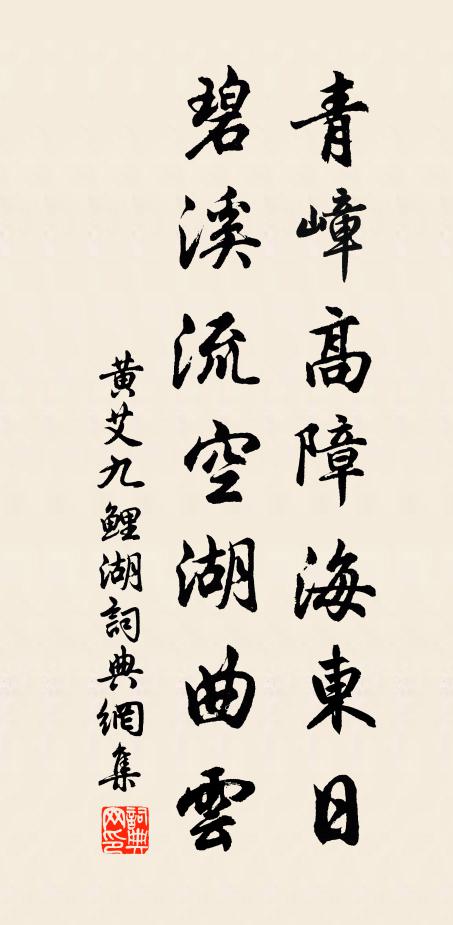 青嶂高障海東日
碧溪流空湖曲雲
黃艾九鯉湖詞典網集
詞典网印